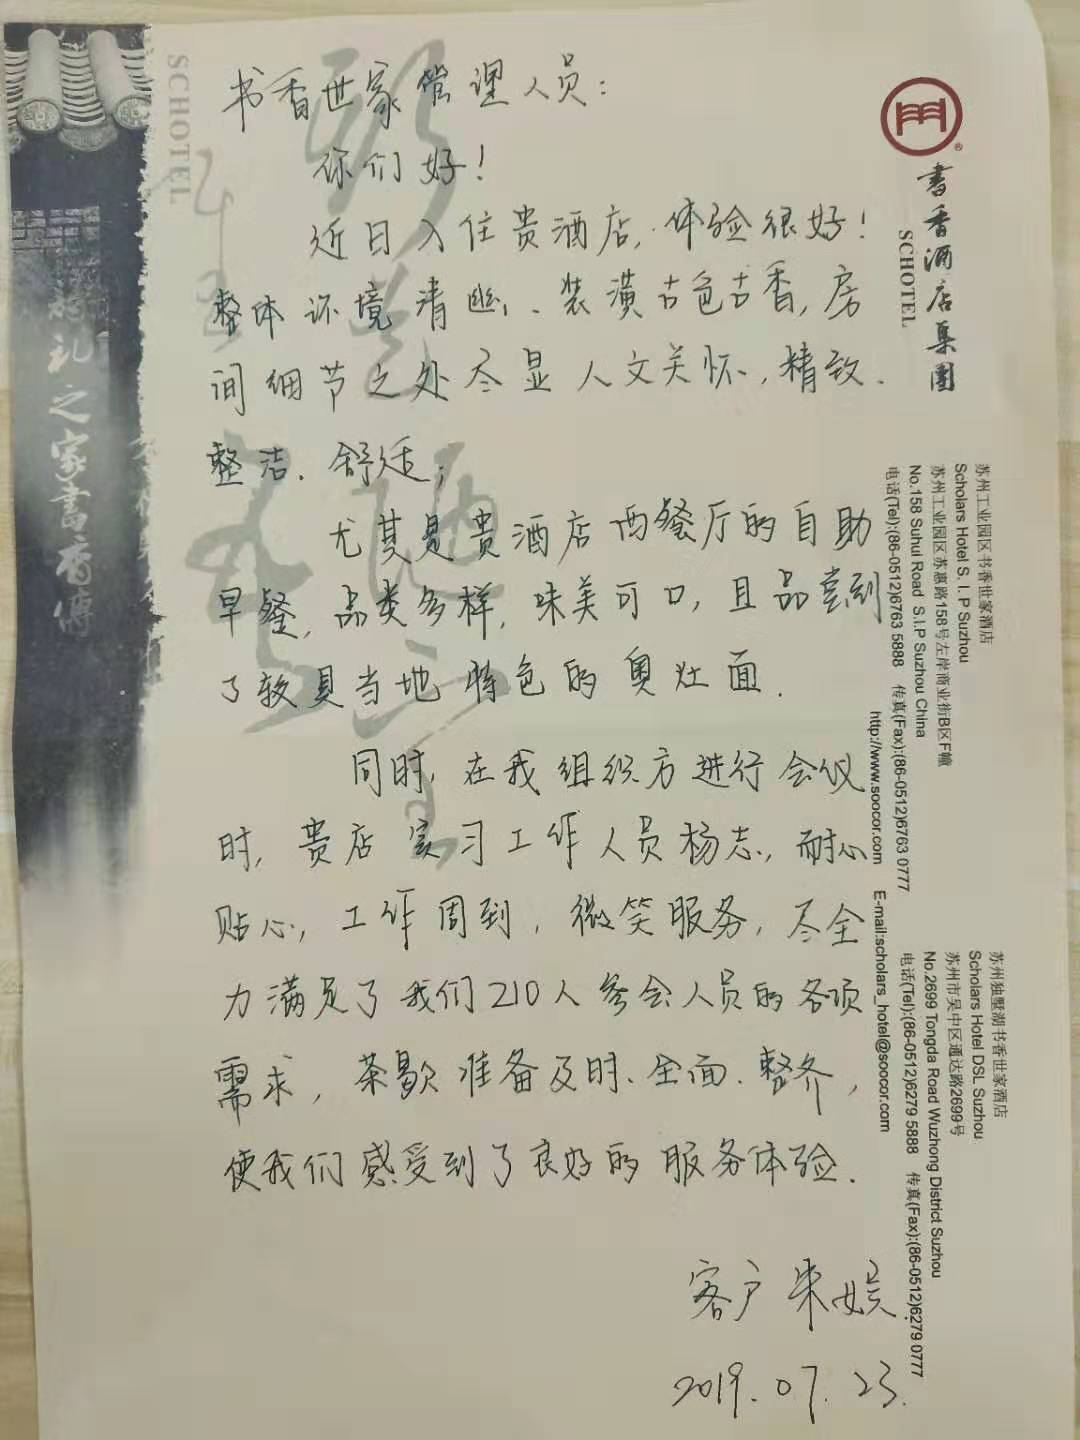 书香世家管理人员：
你们好！
近日入住贵酒店，体验很好！
整体环境清幽、装潢古色古香，房
间细节之处尽显人文关怀，精致、
整洁、舒适；
尤其是贵酒店西餐厅的自助
早餐，品类多样，味美可口，且品尝到
了较具当地特色的奥灶面.
同时，在我组织方进行会议
时，贵店实习工作人员杨志，耐心
贴心，工作周到，微笑服务，尽全
力满足了我们210人参会人员的各项
需求，茶歇准备及时、全面、整齐，
使我们感受到了良好的服务体验.
客户朱娱
2019.07.23.
書香酒店集團
SCHOTEL
苏州工业园区书香世家酒店
Scholars Hotel S. I. P Suzhou
苏州工业园区苏惠路158号左岸商业街B区F幢
No.158 Suhui Road S.I.P Suzhou China
电话(Tel):(86-0512)6763 5888 传真(Fax):(86-0512)6763 0777
http://www.soocor.com E-mail:scholars_hotel@soocor.com
苏州独墅湖书香世家酒店
Scholars Hotel DSL Suzhou
苏州市吴中区通达路2699号
No.2699 Tongda Road Wuzhong District Suzhou
电话(Tel):(86-0512)6279 5888 传真(Fax):(86-0512)6279 0777
SCHOTEL
礼之家書香傳